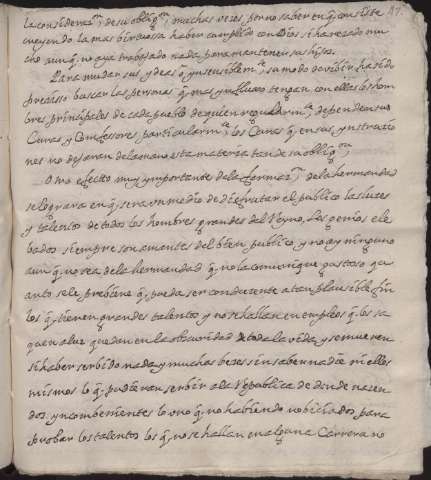 la considerazon, de su obligon, muchas vezes por no saber en q̃ consiste
cuyendo la mas birtuosa haber cumplido con Dios si ha rezado mu
cho aunq̃ no aya trabajado nada para mantener sus hijos.
Para mudar sus ydeas q̃ ynsensiblemte, su modo de vibir ha sido
preciso buscar las personas q̃ mas ynfluxo tengan con ellas los hom
bres prinsipales de cada pueblo de quien regularmte dependen sus
Curas y Confessores, particularmte los Curas q̃ en sus ynstruzio
nes no dejaran de la mano esta materia tan de su obligon,
Otro efecto muy ymportante de la formazon de la hermandad
se lograra en q̃ sera un medio de disfrutar el publico las luces
y talentos de todos los hombres grandes del Reyno, los genios ele
bados siempre son amantes del bien publico, y no ay ninguno
aunq̃ no sea de la hermandad q̃ no la comunique gustoso qu
anto se le prebine q̃ pueda ser conducente a tan plausible fin
los q̃ tienen grandes talentos y no se hallan en empleos q̃ los sa
quen a luz quedan en la obscuridad toda la vida, y se mueren
si haber serbido nada y muchas bezes sin saber nadie ni elles
mismos lo q̃ pudieran serbir a la Republica de donde nasen
dos yncombenientes lo uno q̃ no habiendo para
aprobar los talentos los q̃ no se hallan en alguna Carrera no